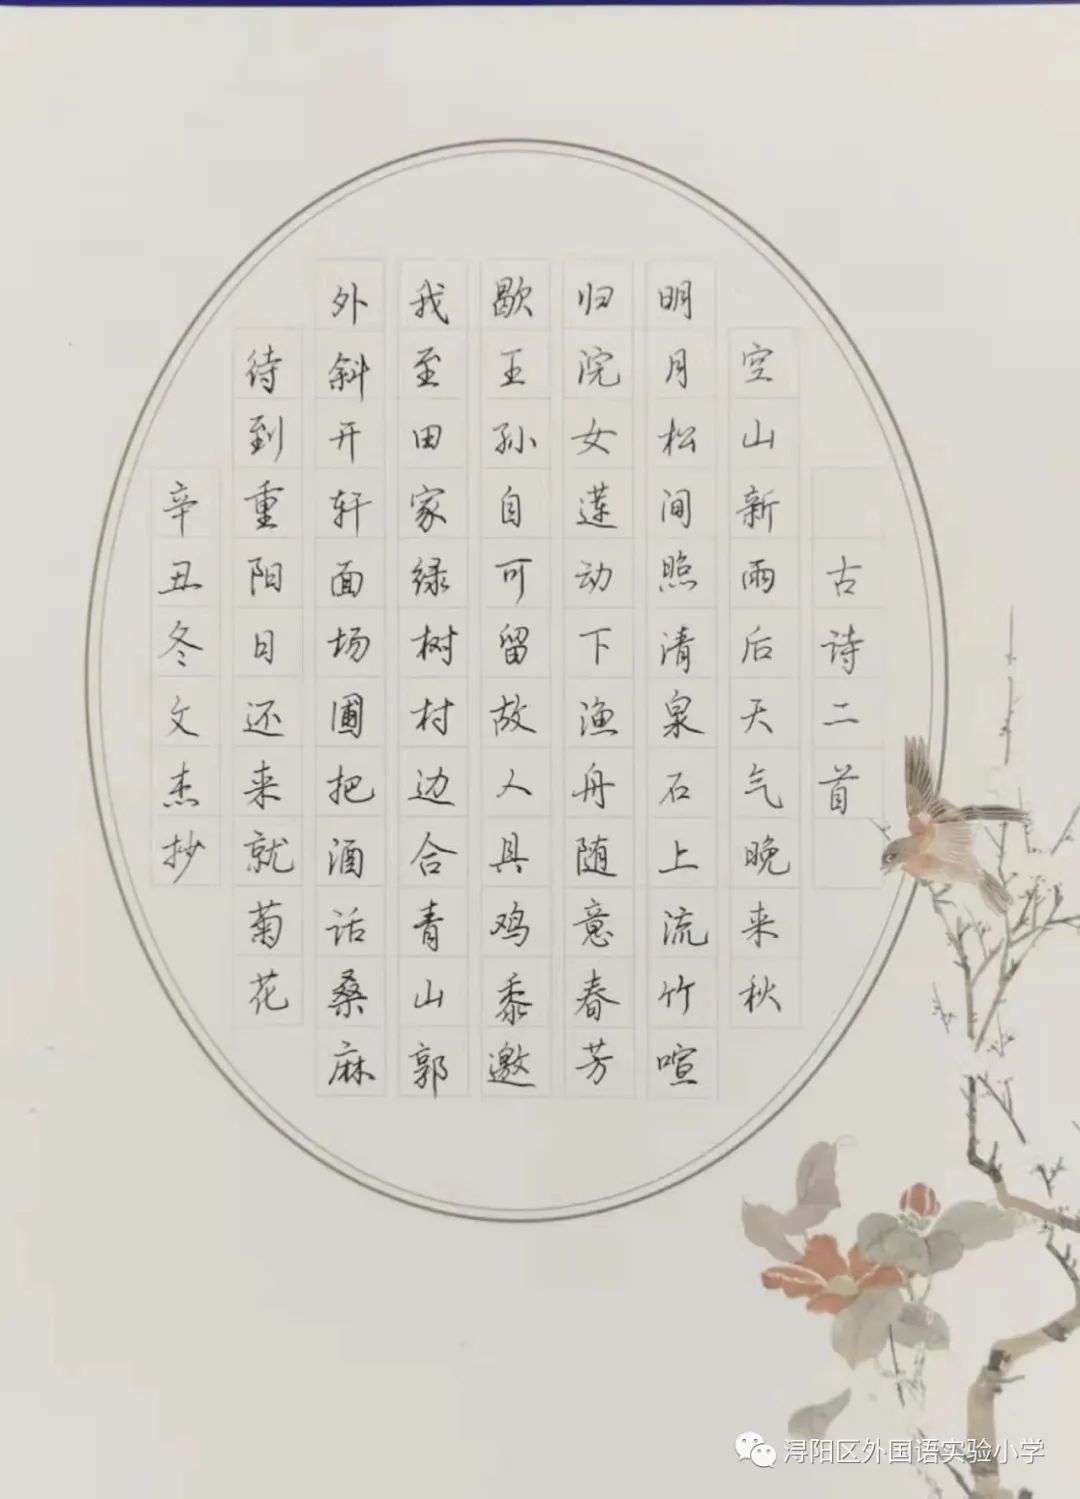 古诗二首
空山新雨后天气晚来秋
明月松间照清泉石上流竹喧
归浣女莲动下渔舟随意春芳
歇王孙自可留故人具鸡黍邀
我至田家绿树村边合青山郭
外斜开轩面场圃把酒话桑麻
待到重阳日还来就菊花
辛丑冬文杰抄
浔阳区外国语实验小学